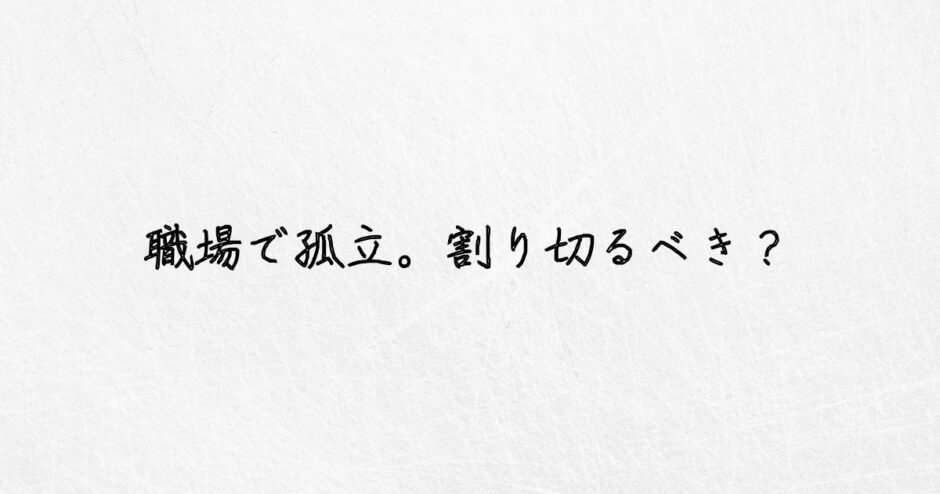 職場で孤立。割り切るべき？